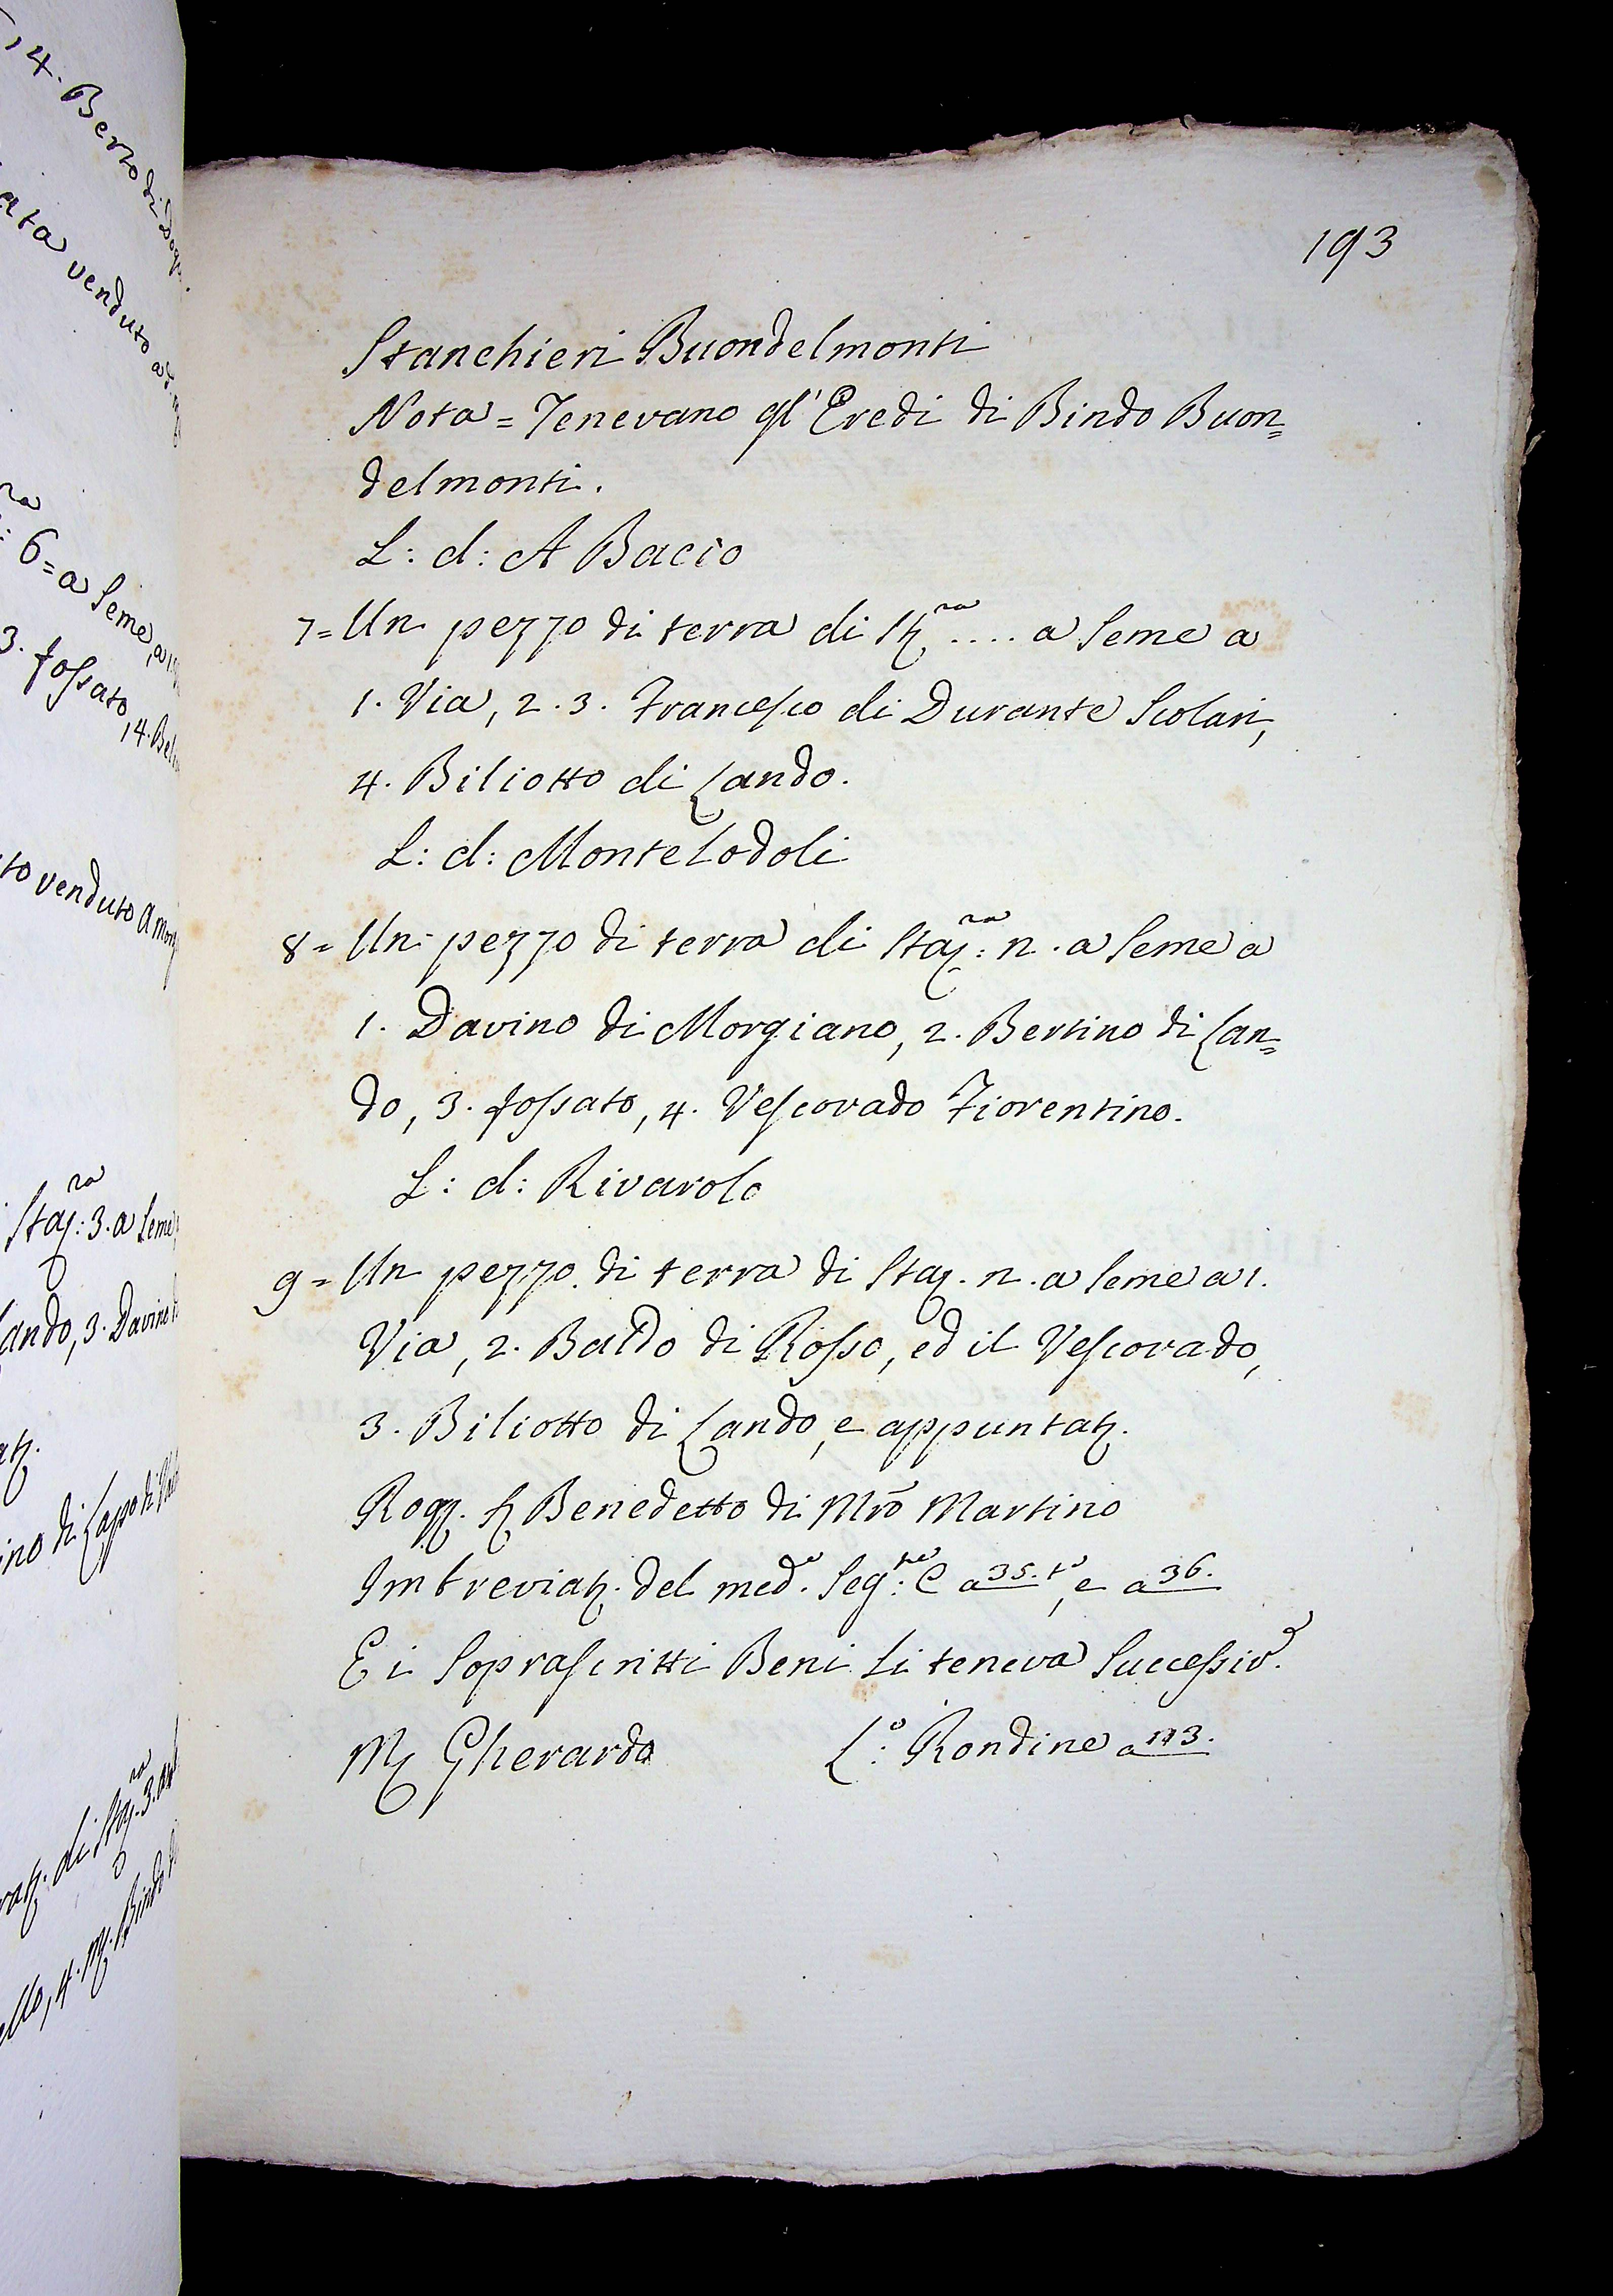 193
Stanchieri Buondelmonti
Nota = Tenevano gl' Eredi di Bindo Buon=
delmonti.
L: d: A Bacio
7= Un pezzo di terra di St.ra .... a Seme a
1. Via, 2. 3. Francesco di Durante Scolari,
4. Biliotto di Lando.
L: d: Montelodoli
8= Un pezzo di terra di Staj:ra n. a Seme a
1. Davino di Morgiano, 2. Bertino di Lan=
do, 3. fossato, 4. Vescovado Fiorentino.
L: d: Rivarolo
9= Un pezzo di terra di Staj. n. a Seme a 1.
Via, 2. Baldo di Rosso, ed il Vescovado,
3. Biliotto di Lando, e appuntat.
Rog. S. Benedetto di Mro Martino
Imbreviat. del med.o Seg:te C a 35. to, e a 36.
E i Soprascritti Beni li teneva Successiv.e
M. Gherardo L:o Rondine a 113.
14. Berto di
ata venduto ad
6= a Seme, a
3. fossato, 4.
to venduto a
Staj:ra 3. a Seme
Lando, 3. Davino
ino di Lapo di
di Staj.ra 3.
ello, 4. M. Bindo